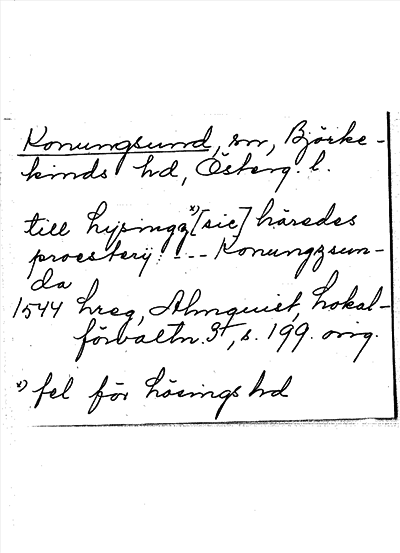 Konungsund, sn, Björke-
kinds hd, Österg. l.
till hysingz x) [sic] häredes
proestery: --- Konungzsun-
da
1544 hreg, Almquist, Lokal-
förvaltn. 3:1, s. 199. orig.
x) fel för hösings hd